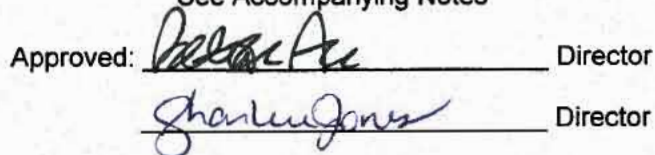 See Accompanying Notes
Approved: Director
Jones Director